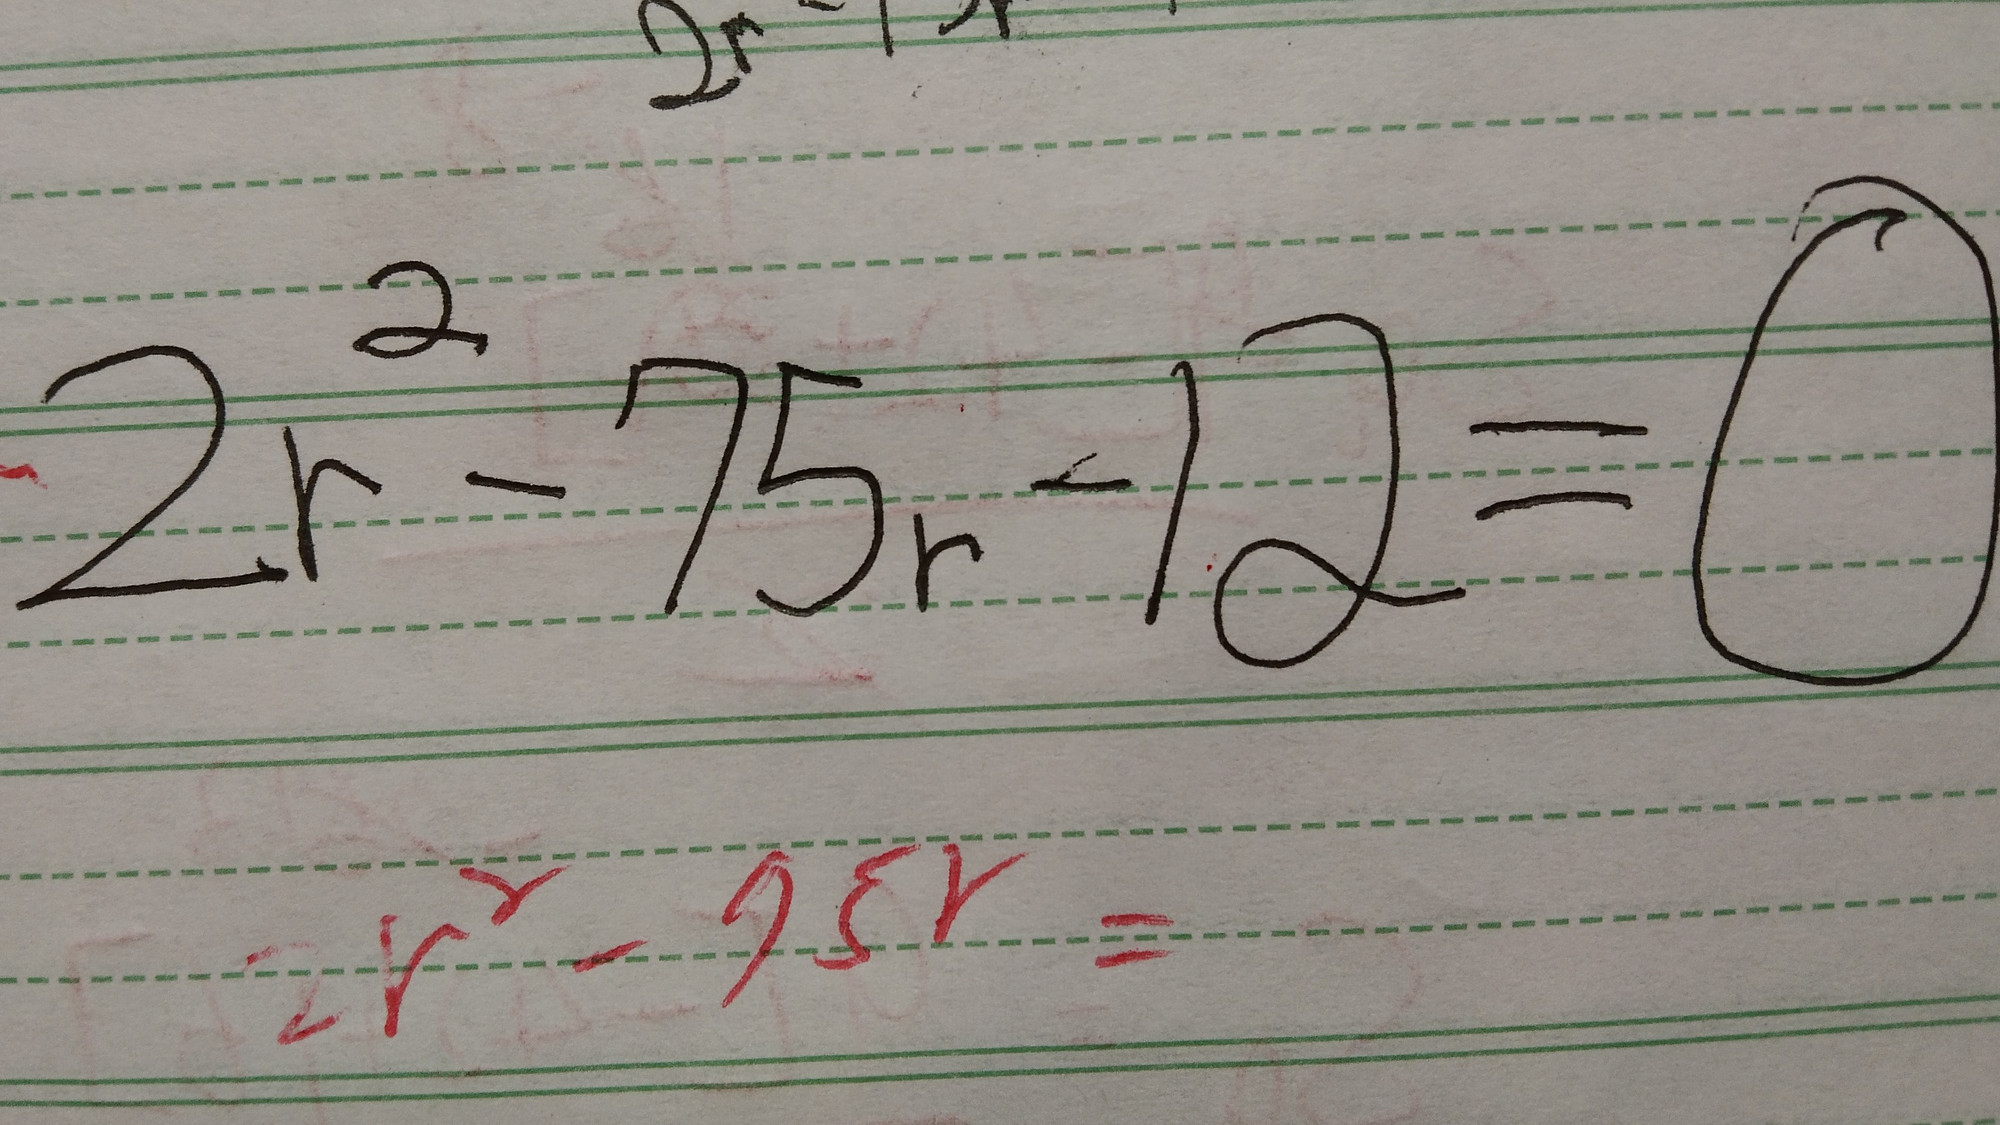 2r² - 75r - 12 = 0
2r² - 95r =